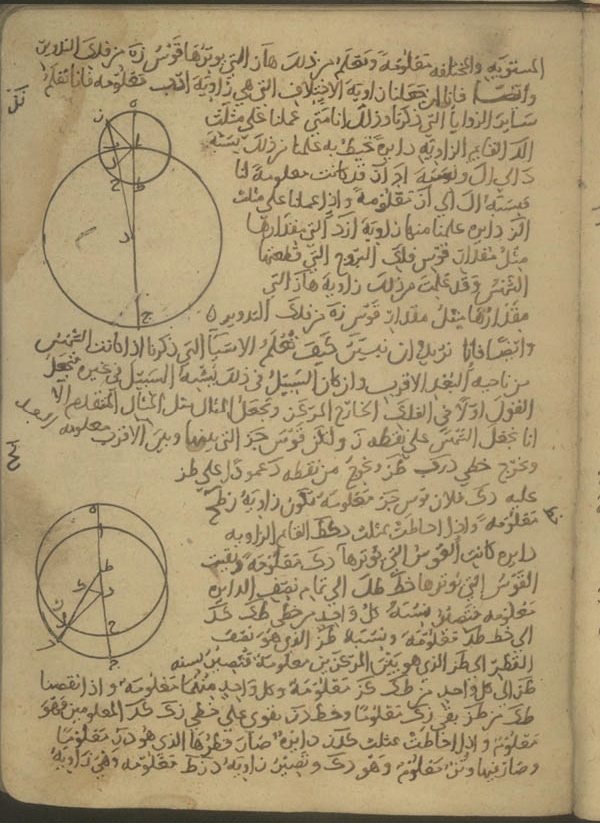 المستويه والمختلفه معلومه ونعلم من ذلك هاز التى يوترها قوس زه من فلك التدوير
وايضا فانا ان جعلنا زاوية الاختلاف التى هى زاوية ادب معلومه فانا نعلم
ساير الزوايا التى ذكرنا وذلك انا متى عملنا على مثلث
الد القايم الزاوية دايره تحيط به علمنا من ذلك نسبة
دا الى ال ونسبة اد الى از قد كانت معلومة لنا
فنسبة ال الى از معلومة واذا عملنا على مثلث
الز دايره علمنا منها زاوية ازد التى مقدارها
مثل مقدار قوس فلك البروج التى قطعتها
الشمس وقد علمت من ذلك زاوية هاز التى
مقدارها مثل مقدار قوس زه من فلك التدوير
وايضا فانا نريد ان نبين كيف نعلم الاشيا التى ذكرنا اذا كانت الشمس
من ناحيه البعد الاقرب وان كان السبيل فى ذلك يشبه السبيل فى غيره فنجعل
القول اولا فى الفلك الخارج المركز ونجعل المثال مثل المثال المتقدم الا
انا نجعل الشمس على نقطه ز ولتكن قوس جز التى بينها وبين الاقرب معلومه
ونخرج خطى درب طز ونخرج من نقطه د عمودا على طز
عليه دك فلان قوس جز معلومة تكون زاوية زطح
معلومه واذا احاطت بمثلث دكط القايم الزاويه
دايره كانت القوس التى يوترها دك معلومه وبقيت
القوس التى يوترها خط طك الى تمام نصف الدايره
معلومه فتصير نسبة كل واحد من خطى طك كد
الى خط طد معلومه ونسبة طز الذى هو نصف
القطر الى طد الذى هو بين المركزين معلومة فتصير نسبة
طز الى كل واحد من طك كد معلومة وكل واحد منها معلومه واذا نقصنا
طك من طز بقى زك معلوما وخط دز يقوى على خطى زك كد المعلومين فهو
معلوم واذا احاطت بمثلث كدز دايره صار قطرها الذى هو دز معلوما
وصار فيها وتر معلوم وهو دك وتصير زاوية دزط معلومه وهى زاوية